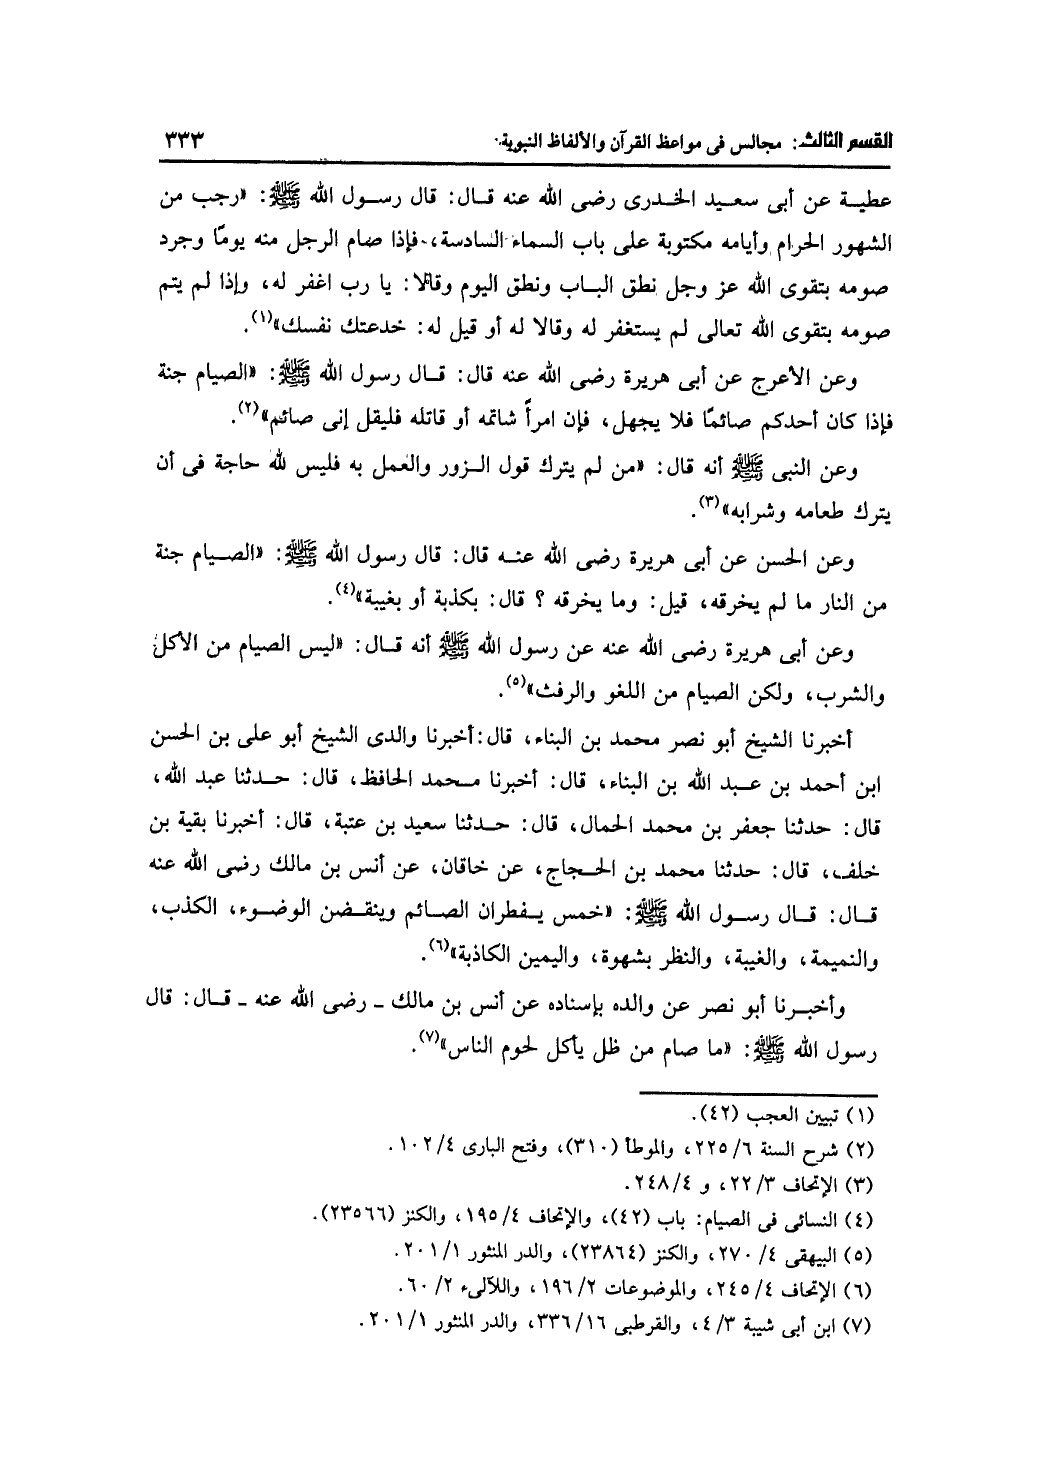 القسم الثالث: مجالس فى مواعظ القرآن والألفاظ النبوية. ٣٣٣
عطية عن أبى سعيد الخدرى رضى الله عنه قال: قال رسول الله ﷺ: «رجب من
الشهور الحرام وأيامه مكتوبة على باب السماء السادسة، فإذا صام الرجل منه يومًا وجرد
صومه بتقوى الله عز وجل نطق الباب ونطق اليوم وقالا: يا رب اغفر له، وإذا لم يتم
صومه بتقوى الله تعالى لم يستغفر له وقالا له أو قيل له: خدعتك نفسك»(١).
وعن الأعرج عن أبى هريرة رضى الله عنه قال: قال رسول الله ﷺ: «الصيام جنة
فإذا كان أحدكم صائمًا فلا يجهل، فإن امرأً شاتمه أو قاتله فليقل إنى صائم»(٢).
وعن النبى ﷺ أنه قال: «من لم يترك قول الزور والعمل به فليس لله حاجة فى أن
يترك طعامه وشرابه»(٣).
وعن الحسن عن أبى هريرة رضى الله عنه قال: قال رسول الله ﷺ: «الصيام جنة
من النار ما لم يخرقه، قيل: وما يخرقه ؟ قال: بكذبة أو بغيبة»(٤).
وعن أبى هريرة رضى الله عنه عن رسول الله ﷺ أنه قال: «ليس الصيام من الأكل
والشرب، ولكن الصيام من اللغو والرفث»(٥).
أخبرنا الشيخ أبو نصر محمد بن البناء، قال: أخبرنا والدى الشيخ أبو على بن الحسن
ابن أحمد بن عبد الله بن البناء، قال: أخبرنا محمد الحافظ، قال: حدثنا عبد الله،
قال: حدثنا جعفر بن محمد الحمال، قال: حدثنا سعيد بن عتبة، قال: أخبرنا بقية بن
خلف، قال: حدثنا محمد بن الحجاج، عن خاقان، عن أنس بن مالك رضى الله عنه
قال: قال رسول الله ﷺ: «خمس يفطران الصائم وينقضن الوضوء، الكذب،
والنميمة، والغيبة، والنظر بشهوة، واليمين الكاذبة»(٦).
وأخبرنا أبو نصر عن والده بإسناده عن أنس بن مالك ـ رضى الله عنه ـ قال: قال
رسول الله ﷺ: «ما صام من ظل يأكل لحوم الناس»(٧).
(١) تبيين العجب (٤٢).
(٢) شرح السنة ٦/ ٢٢٥، والموطأ (٣١٠)، وفتح البارى ٤/ ١٠٢.
(٣) الإتحاف ٣/ ٢٢، و ٤/ ٢٤٨.
(٤) النسائى فى الصيام: باب (٤٢)، والإتحاف ٤/ ١٩٥، والكنز (٢٣٥٦٦).
(٥) البيهقى ٤/ ٢٧٠، والكنز (٢٣٨٦٤)، والدر المنثور ١/ ٢٠١.
(٦) الإتحاف ٤/ ٢٤٥، والموضوعات ٢/ ١٩٦، واللآلىء ٢/ ٦٠.
(٧) ابن أبى شيبة ٣/ ٤، والقرطبى ١٦/ ٣٣٦، والدر المنثور ١/ ٢٠١.